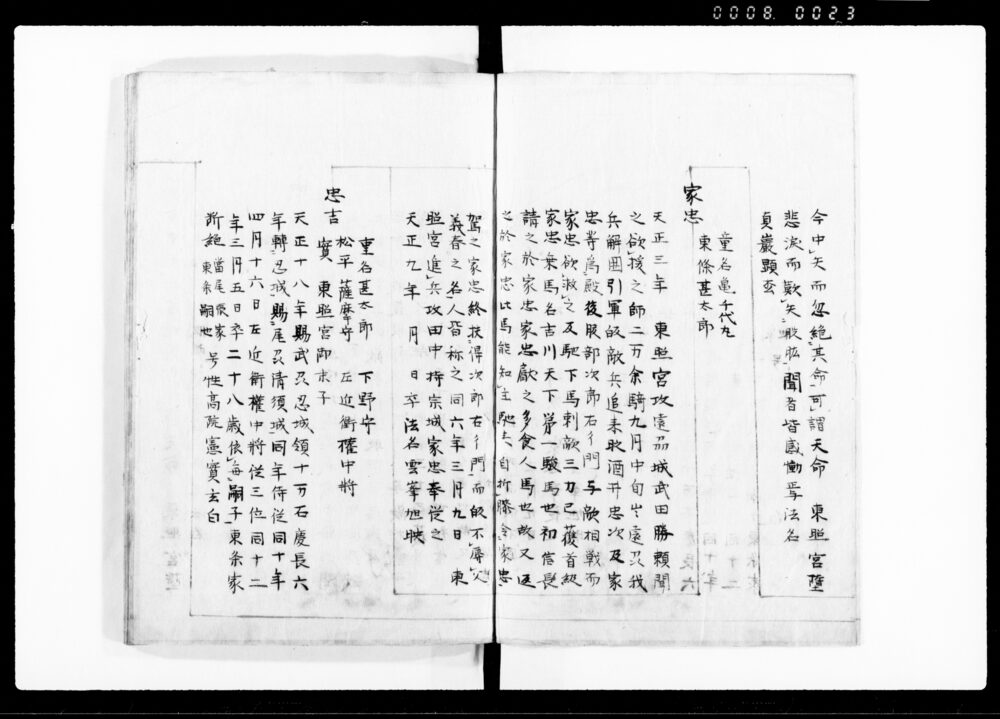 0008. 0023
今中矢而忽絶其命可謂天命　東照宮墮
悲涙而歎矢敗於聞者皆感慟焉号法名
貞巖顕玄
家忠
童名亀千代丸
東條甚太郎
天正三年　東照宮攻遠刕城武田勝頼聞
之欲援之師二万余騎九月中旬出遠刕我
兵解囲引軍敵兵追来酒井忠次及家
忠等為殿後服部次郎右衛門与敵相戦而
家忠欲救之及馳下馬刺敵三刀已獲首級
家忠乗馬名吉川天下第一駿馬也初信長
請之於家忠家忠獻之多食人馬也故又返
之於家忠此馬能知主馳去自折膝令家忠
駕之家忠終扶得次郎右衛門而皈不辱父
義春之名人皆称之同六年三月九日　東
照宮進兵攻田中持宗城家忠奉従之
天正九年　月　日卒法名雲峯旭映
忠吉
童名甚太郎　下野守
松平薩摩守　左近衛権中将
實　東照宮御末子
天正十八年賜武刕忍城領十万石慶長六
年轉忍城賜尾刕清須城同年侍従同十年
四月十六日左近衛權中将従三位同十二
年三月五日卒二十八歳依無嗣子東条家
所絶 當尾張家 東条嗣也 号性高院憲實玄白